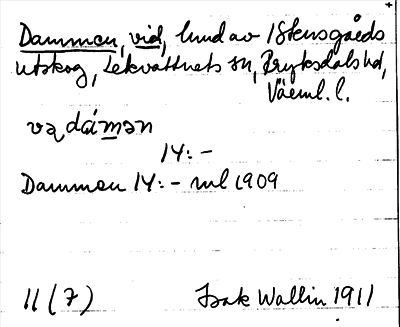 Dammen, vid, lund av 1 Stensgårds
utskog, Lekvattnets sn, Fryksdals hd,
Värml. l.
va dámən
14:-
Dammen 14:- rul 1909
11 (7) Isak Wallin 1911